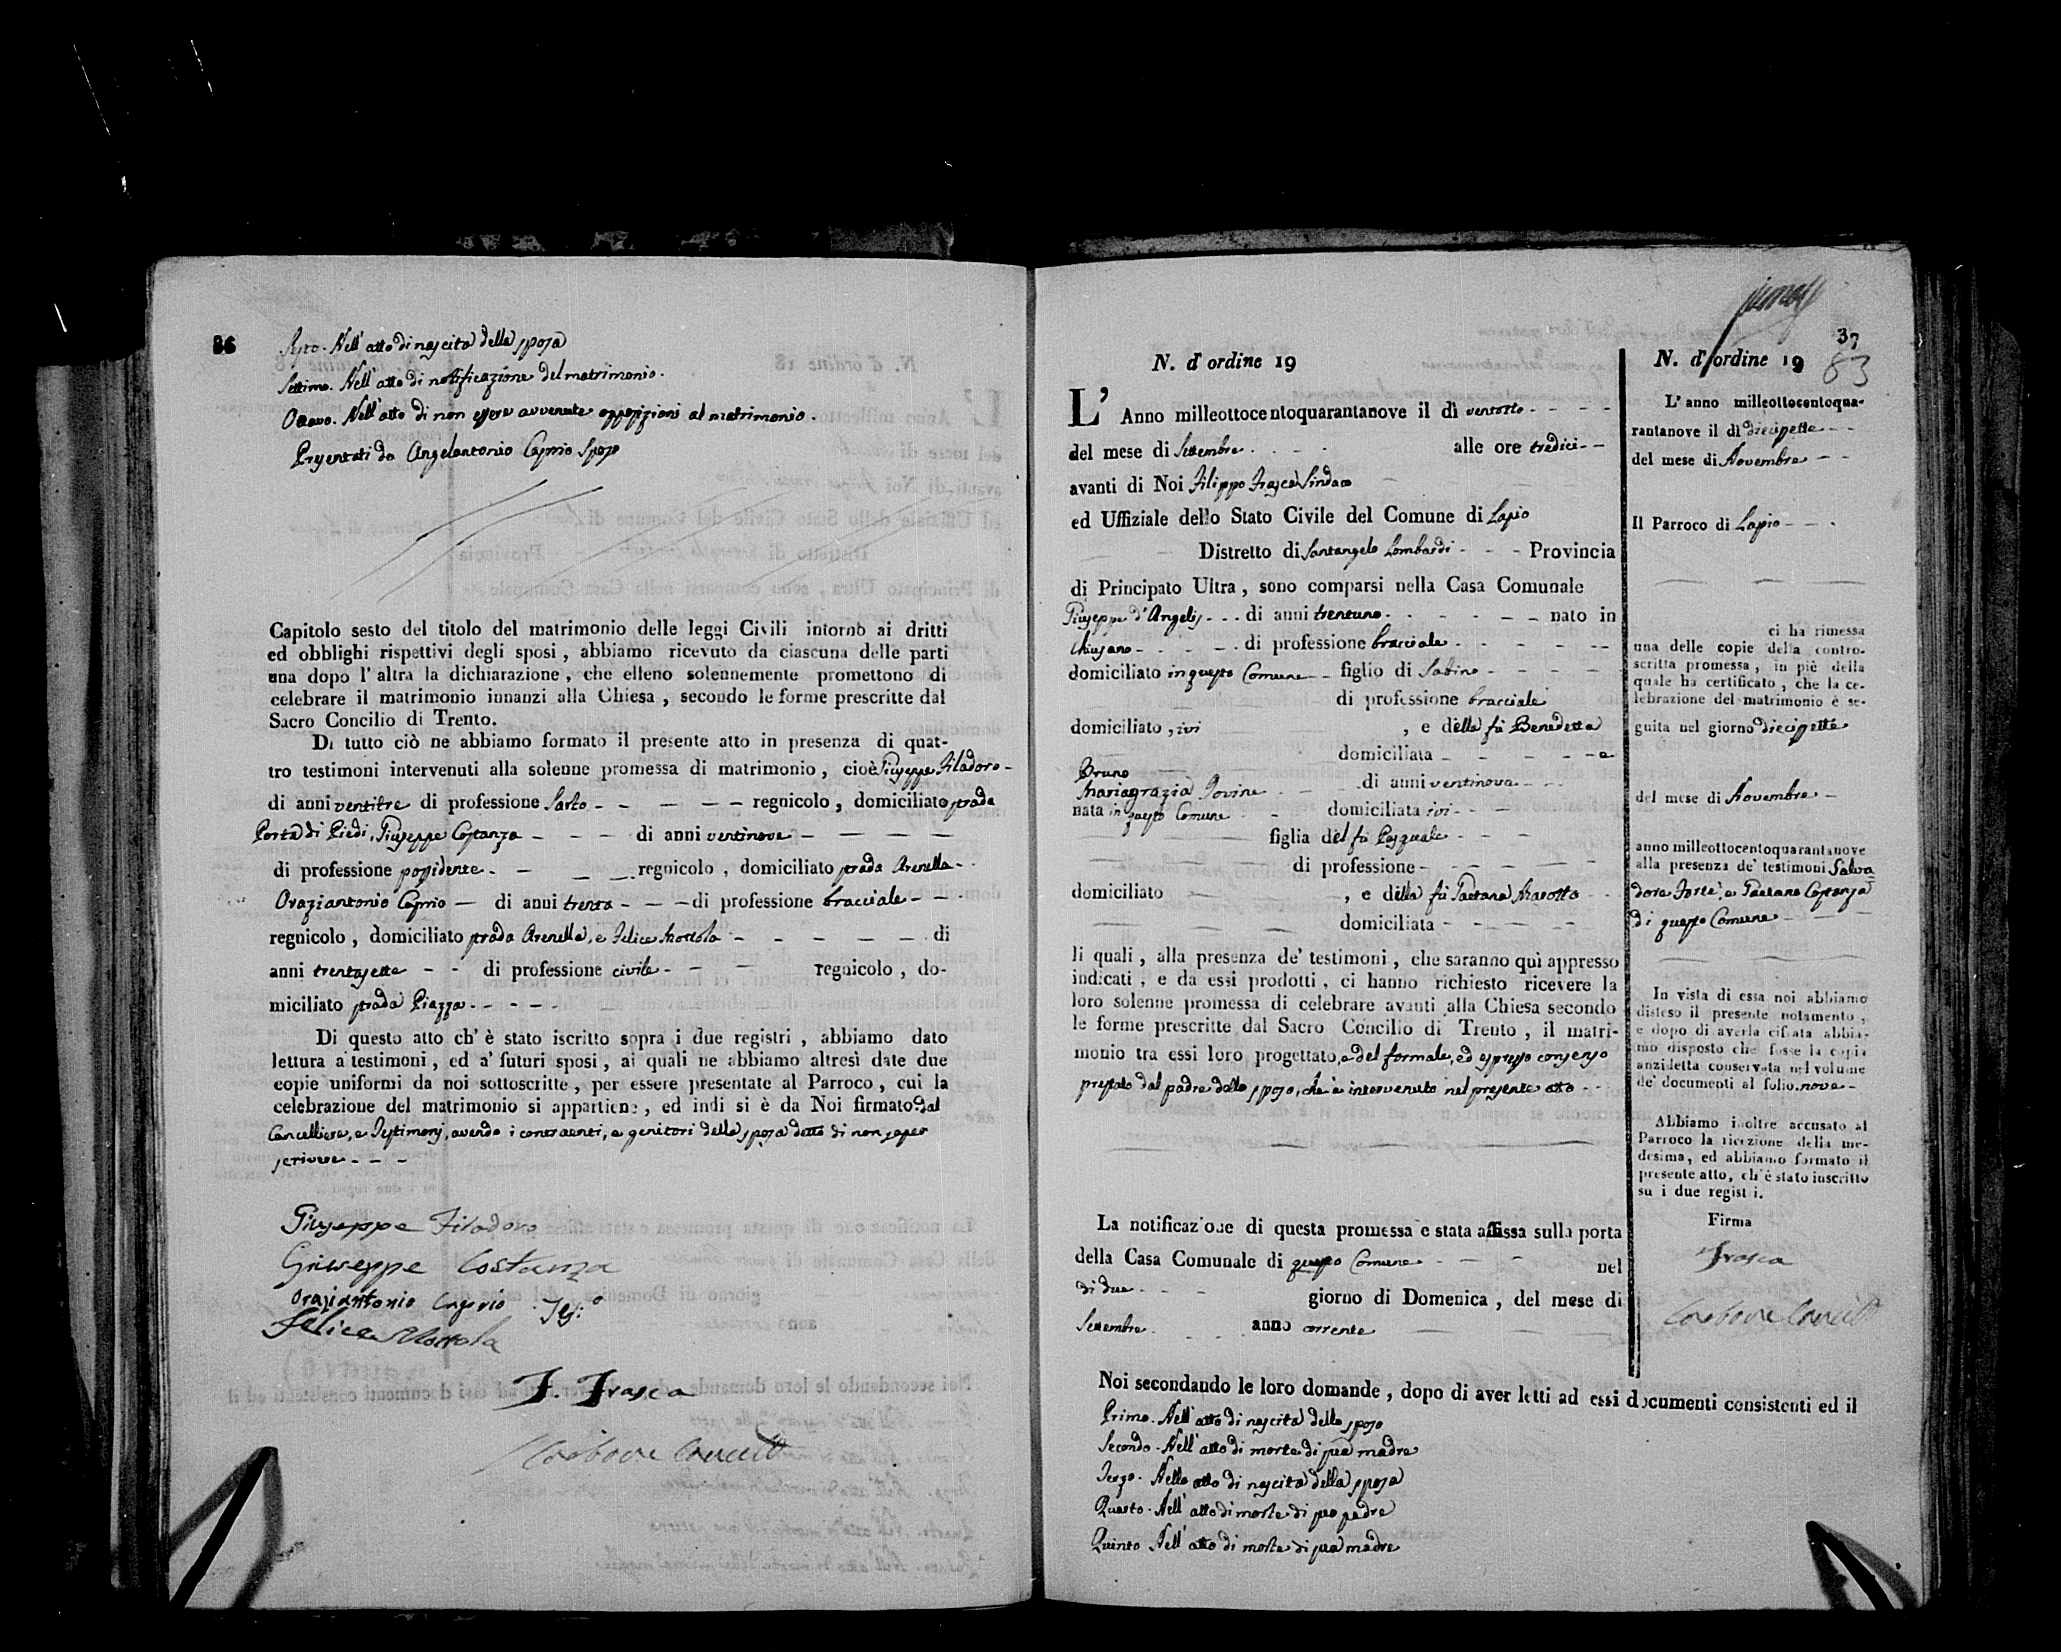 86
Sesto. Nell' atto di nascita della sposa
Settimo. Nell' atto di notificazione del matrimonio.
Ottavo. Nell' atto di non essere avvenute opposizioni al matrimonio.
Presentati da Angelantonio Caprio Sposo
Capitolo sesto del titolo del matrimonio delle leggi Civili intorno ai dritti
ed obblighi rispettivi degli sposi, abbiamo ricevuto da ciascuna delle parti
una dopo l' altra la dichiarazione, che elleno solennemente promettono di
celebrare il matrimonio innanzi alla Chiesa, secondo le forme prescritte dal
Sacro Concilio di Trento.
Di tutto ciò ne abbiamo formato il presente atto in presenza di quat-
tro testimoni intervenuti alla solenne promessa di matrimonio, cioè Giuseppe Filadoro -
di anni ventitre di professione Sarto - - - - - regnicolo, domiciliato strada
Porta di Piedi, Giuseppe Costanza - - - di anni ventinove - - - - -
di professione possidente - - - - regnicolo, domiciliato strada Arenella - -
Oraziantonio Caprio - di anni trenta - - - di professione bracciale - - -
regnicolo, domiciliato strada Arenella, e Felice Mottola - - - - - di
anni trentasette - - di professione civile - - - regnicolo, do-
miciliato strada Piazza - - - - -
Di questo atto ch' è stato iscritto sopra i due registri, abbiamo dato
lettura a' testimoni, ed a' futuri sposi, ai quali ne abbiamo altresì date due
copie uniformi da noi sottoscritte, per essere presentate al Parroco, cui la
celebrazione del matrimonio si appartiene, ed indi si è da Noi firmato dal
Cancelliere, e Testimonj, avendo i contraenti, e genitori della sposa detto di non saper
scrivere - - -
Giuseppe Filadoro
Giuseppe Costanza
Oraziantonio Caprio
Felice Mottola
F. Frasca
37
83
N. d' ordine 19
L' Anno milleottocentoquarantanove il dì ventotto - - - -
del mese di Settembre . . - - alle ore tredici - -
avanti di Noi Filippo Frasca Sindaco
ed Uffiziale dello Stato Civile del Comune di Lapio
Distretto di Santangelo Lombardi - - - Provincia
di Principato Ultra, sono comparsi nella Casa Comunale
Giuseppe d'Angelis - - - di anni trentuno - - - - - - nato in
Chiusano - - - - - di professione bracciale - - - - - -
domiciliato in questo Comune - - figlio di Sabino - - - - -
di professione bracciale
domiciliato, ivi , e della fù Benedetta
Bruno domiciliata - - - - - - e
Mariagrazia Iovine - - - di anni ventinove - - -
nata in questo Comune - domiciliata ivi - - -
figlia del fù Pasquale - - -
di professione - - - - - -
domiciliato , e della fù Gaetana - -
domiciliata - - - - -
li quali, alla presenza de' testimoni, che saranno qui appresso
indicati, e da essi prodotti, ci hanno richiesto ricevere la
loro solenne promessa di celebrare avanti alla Chiesa secondo
le forme prescritte dal Sacro Concilio di Trento, il matri-
monio tra essi loro progettato, e del formale, ed espresso consenso
prestato dal padre dello sposo, che è intervenuto nel presente atto - - -
La notificazione di questa promessa è stata affissa sulla porta
della Casa Comunale di questo Comune - - - nel
di due - - - giorno di Domenica, del mese di
Settembre - - - anno corrente
Noi secondando le loro domande, dopo di aver letti ad essi documenti consistenti ed il
Primo. Nell' atto di nascita dello sposo
Secondo. Nell' atto di morte di sua madre
Terzo. Nello atto di nascita della sposa
Quarto. Nell' atto di morte di suo padre
Quinto Nell' atto di morte di sua madre
N. d' ordine 19
L' anno milleottocentoqua-
rantanove il dì diecisette - -
del mese di Novembre - -
Il Parroco di Lapio - - -
ci ha rimessa
una delle copie della contro-
scritta promessa, in piè della
quale ha certificato, che la ce-
lebrazione del matrimonio è se-
guita nel giorno diecisette
del mese di Novembre -
anno milleottocentoquarantanove
alla presenza de' testimoni Salva-
dore Forte, e Gaetano Costanza
di questo Comune - - - -
In vista di essa noi abbiamo
disteso il presente notamento,
e dopo di averla cifrata abbia-
mo disposto che fosse la copia
anzidetta conservata nel volume
de' documenti al folio nove -
Abbiamo inoltre accusato al
Parroco la ricezione della me-
desima, ed abbiamo formato il
presente atto, ch'è stato inscritto
su i due registri.
Firma
Frasca